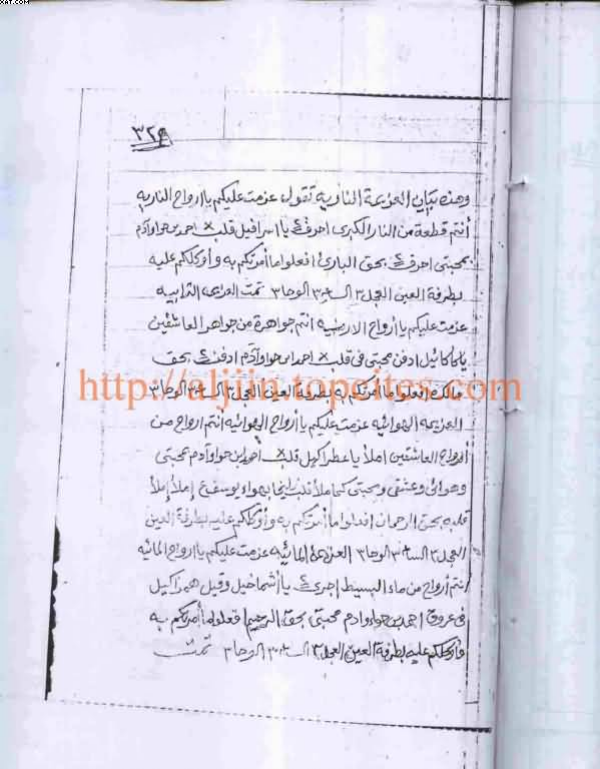 XAT.COM
٣٢٩
وهذه بيان العزيمة النارية تقول عزمت عليكم يا أرواح النارية
أنتم قطعة من النار الكبرى احرقـ ٤ يا اسرافيل قلب × احمد بن حوا وآدم
بمحبتى احرقـ ٤ بحق البارئ افعلوا ما أمرتكم به وأوكلكم عليه
بطرفة العين العجل ٣ الساعة ٣ الوحا ٣ تمت العزيمه الترابيه
عزمت عليكم يا أرواح الارضيه انتم جواهرة من جواهر العاشقين
يا ميكائيل ادفن محبتى فى قلب × احمد ابن حوا وآدم ادفنـ ٤ بحق
مالك افعلوا ما أمرتكم به بطرفة العين العجل ٣ الساعة ٣ الوحا ٣
العزيمه الهوائيه عزمت عليكم يا أرواح الهوائيه انتم أرواح من
أرواح العاشقين املأ يا عطراكيل قلب × احمد ابن حوا وآدم بمحبتى
وهوائى وعشقى ومحبتى كما ملأ قلب زليخا بهواء يوسف ع إملأ إملأ
قلبه بحق الرحمان افعلوا ما أمرتكم به وأوكلكم عليه بطرفة العين
العجل ٣ الساعة ٣ الوحا ٣ العزيمة المائيه عزمت عليكم يا ارواح المائيه
انتم أرواح من ماء البسيط اجرى ٤ يا أشماخيل وقيل همراكيل
فى عروق احمد بن حوا وادم محبتى بحق الرحيم افعلوا ما أمرتكم به
وأوكلكم عليه بطرفة العين العجل ٣ الساعة ٣ الوحا ٣ تمت
http://aljiin.topcites.com